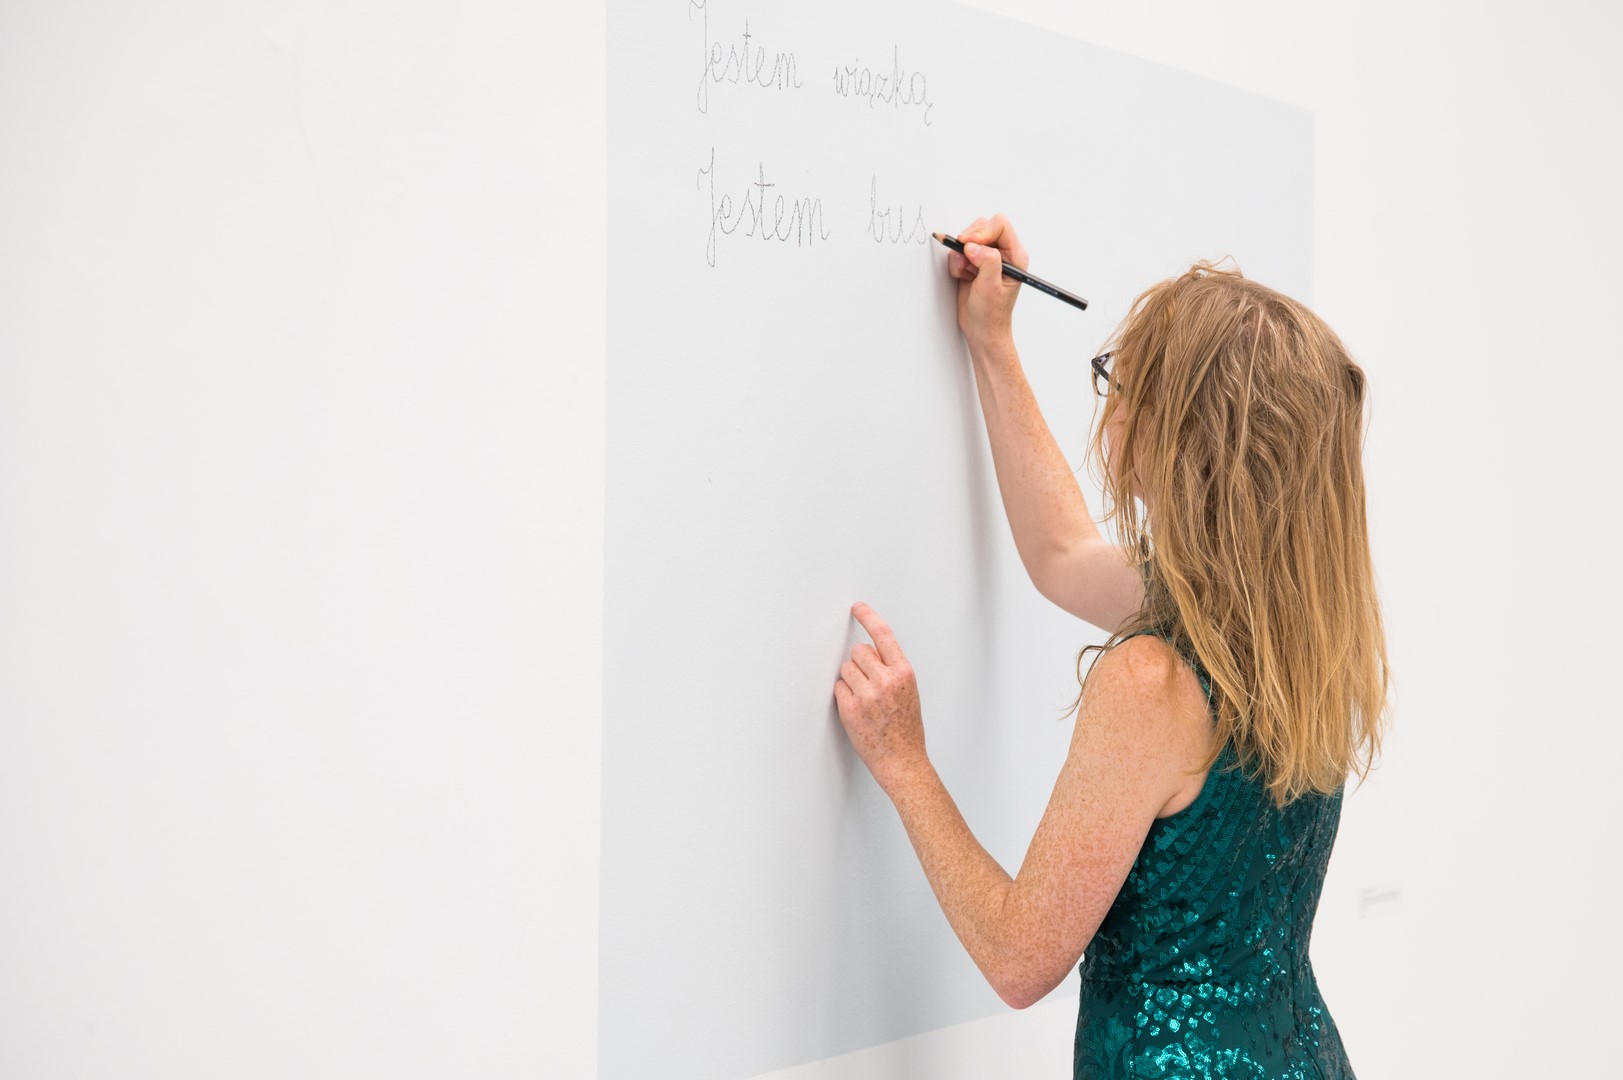 Jestem wiązką
Jestem bus